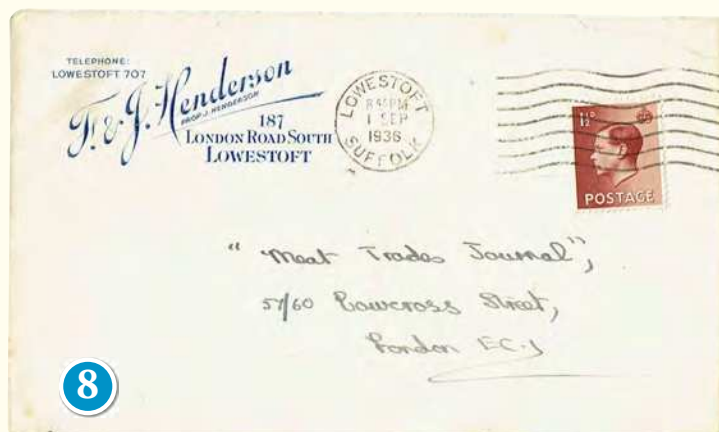 TELEPHONE:
LOWESTOFT 707
F. & J. Henderson
PROP. J. HENDERSON
187
LONDON ROAD SOUTH
LOWESTOFT
LOWESTOFT
8 45 PM
1 SEP
1936
SUFFOLK
1½D
POSTAGE
"Meat Trades Journal",
57/60 Cowcross Street,
London E.C.1
8